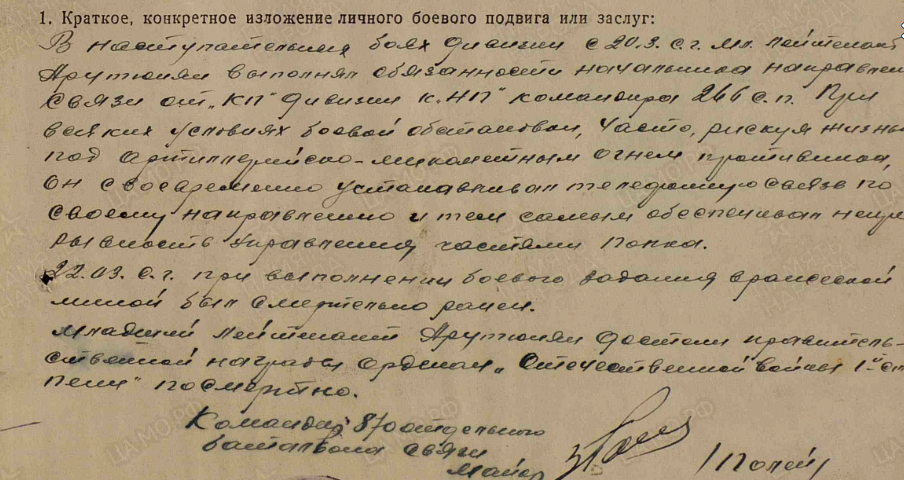 1. Краткое, конкретное изложение личного боевого подвига или заслуг:
В наступательных боях дивизии с 20.3. с.г. мл. лейтенант
Арутюнян выполнял обязанности начальника направлен
связи от „КП" дивизии к „НП" командира 266 с.п. При
всяких условиях боевой обстановки, часто, рискуя жизнь
под артиллерийско-минометным огнем противника,
он своевременно устанавливал телефонную связь по
своему направлению и тем самым обеспечивал непре
рывность управления частями полка.
22.03. с.г. при выполнении боевого задания вражеской
миной был смертельно ранен.
Младший лейтенант Арутюнян достоин правитель-
ственной награды орденом „Отечественной войны 1й сте
пени" посмертно.
Командир 870 отдельного
батальона связи
Майор